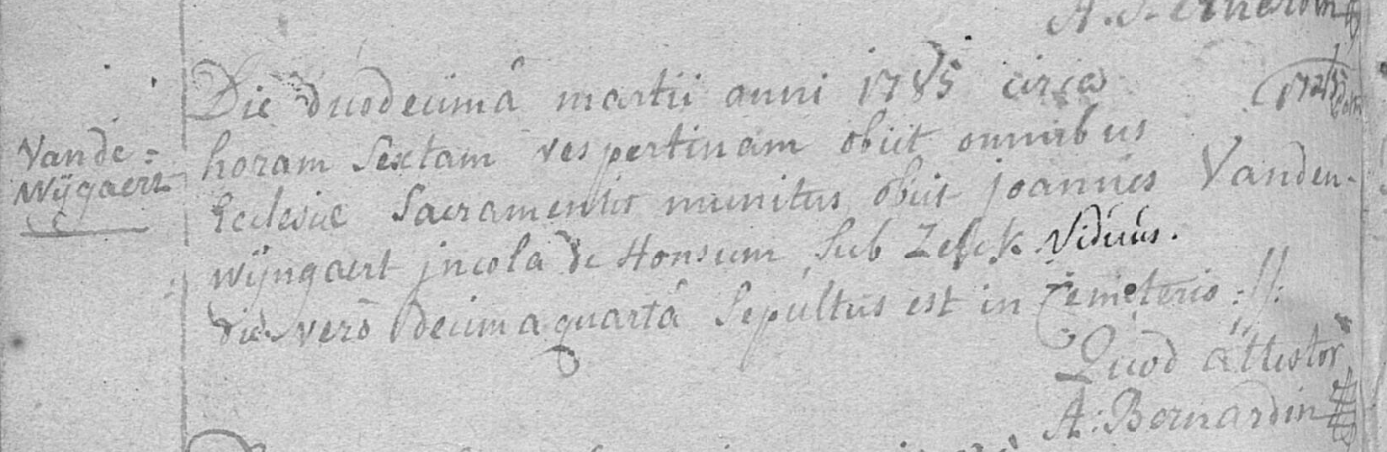 Die duodecimâ martii anni 1785 circa
Vande=
Wÿgaert
horam Sextam vespertinam obiit omnibus
Ecclesiæ Sacramentis munitus obiit joannes Vanden-
wijngaert jncola de Honsum Sub Zelck Viduus.
die verò decimaquartâ Sepultus est in Cemeterio ://:
Quod attestor
A: Bernardin